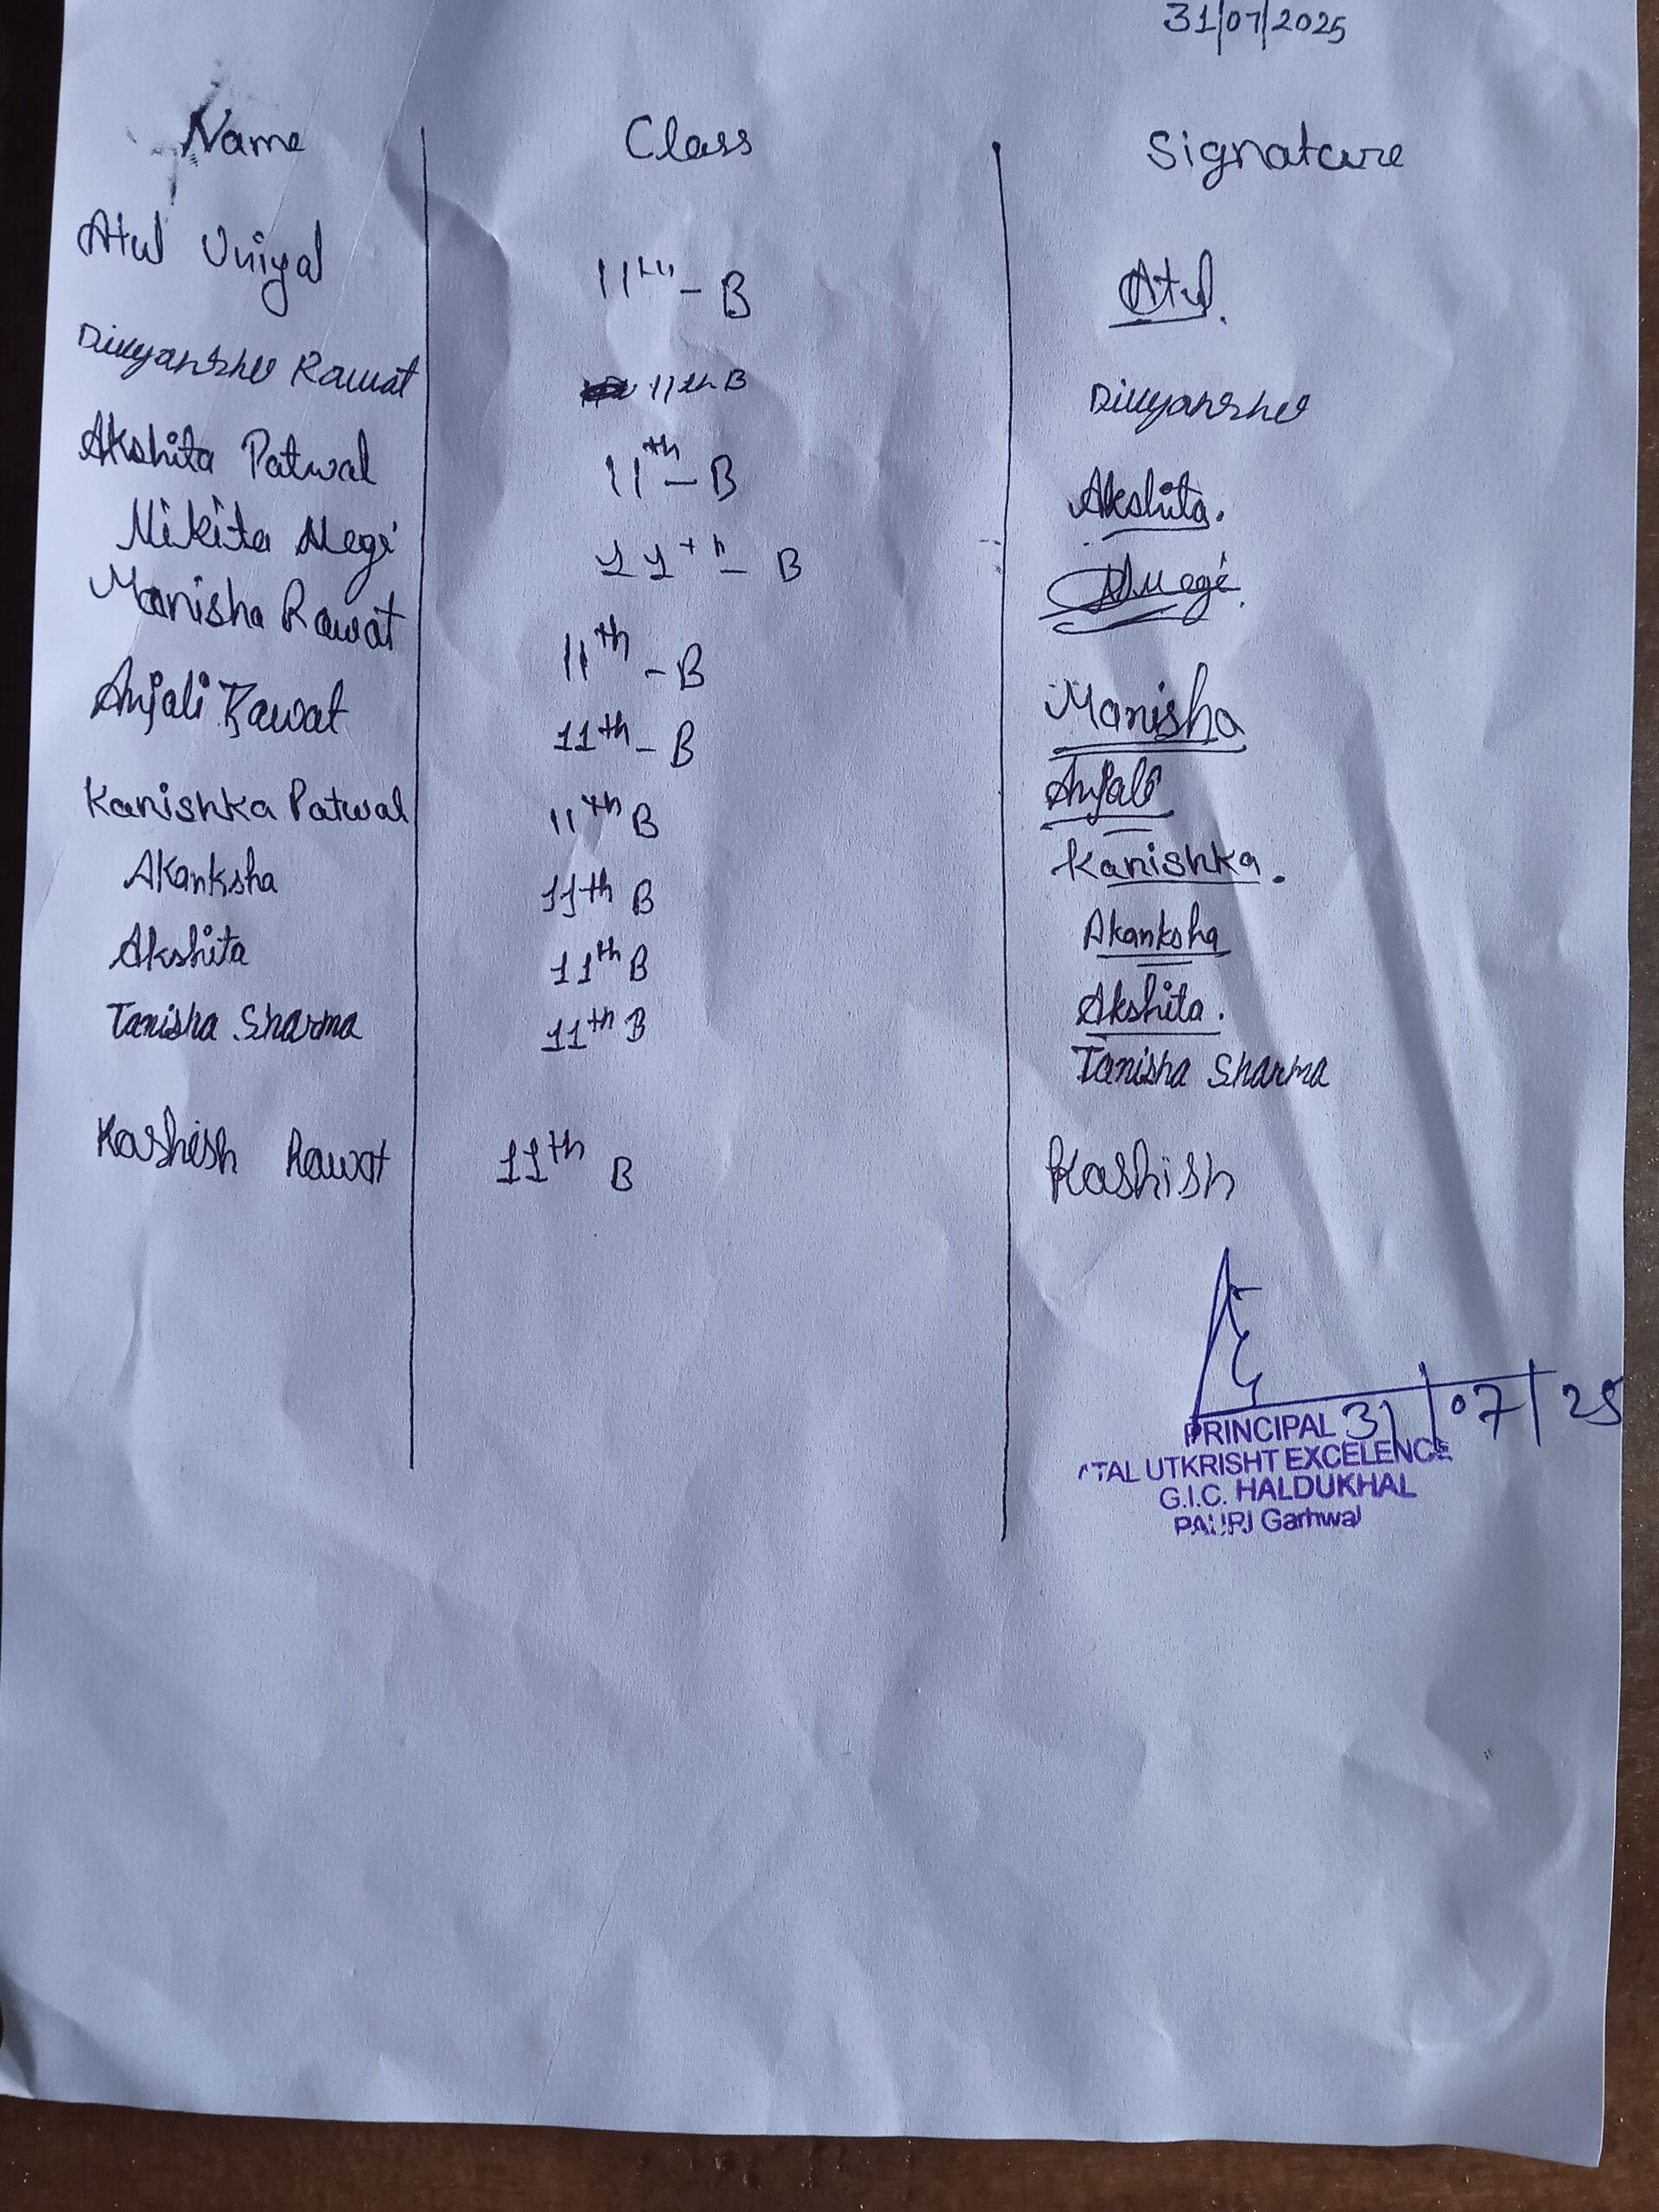 31/07/2025
Name Class Signature
Atul Uniyal 11th - B Atul.
Divyanshu Rawat 11th B Divyanshu
Akshita Patwal 11th - B Akshita.
Nikita Negi 11th - B Negi.
Manisha Rawat 11th - B Manisha
Anjali Rawat 11th - B Anjali
Kanishka Patwal 11th B Kanishka.
Akanksha 11th B Akanksha
Akshita 11th B Akshita.
Tanisha Sharma 11th B Tanisha Sharma
Kashish Rawat 11th B Kashish
PRINCIPAL 31/07/25
ATAL UTKRISHT EXCELENCE
G.I.C. HALDUKHAL
PAURI Garhwal